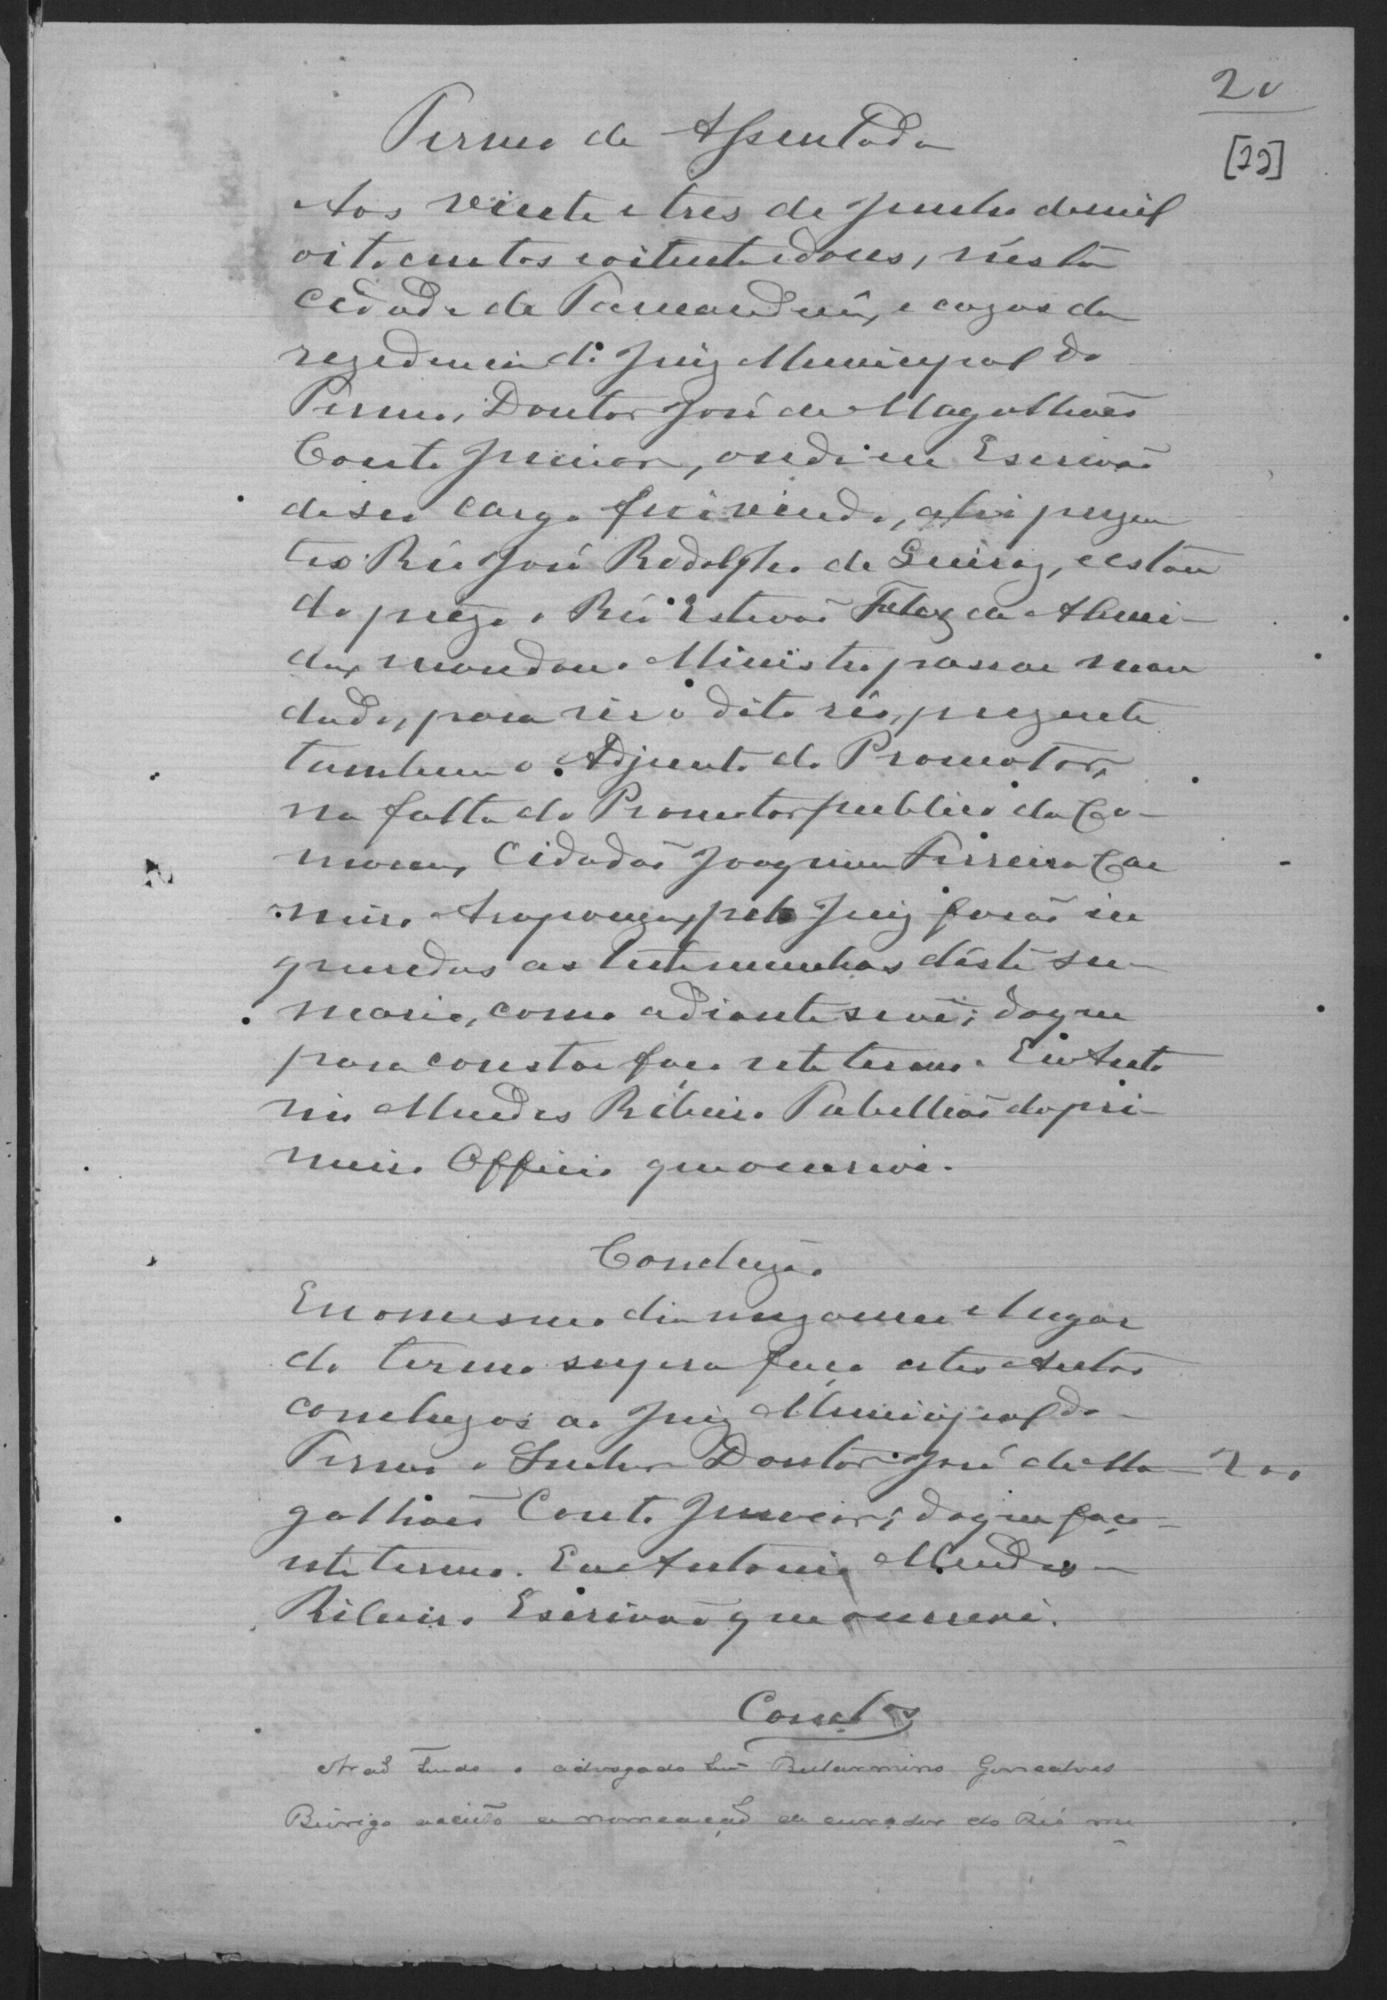 20
[22]
Termo de Assentada
Aos vinte e tres de Junho de mil
oito centos e oitenta e dous, nésta
Cidade de Tamanduá, e cazas da
rezidencia do Juiz Municipal do
Termo, Doutor José de Magalhães
Couto Junior, onde eu Escrivão
de seu cargo fui vindo, ahi prezen
tes Réo José Rodolpho de Queiroz, e estan
do prezo o Réo Estevão de Almei-
da, mandou o Ministro passar man
dado, para vir o dito réo, prezente
tambem o Adjunto do Promotor,
na falta do Promotor publico da Co-
marca, Cidadão Joaquim Ferreira Car
neiro Araponga, pelo Juiz forão in
queridas as testemunhas déste su-
mario, como adiante se vê; do que
para constar faço este termo. Eu Anto
nio Mendes Ribeiro Tabellião do pri-
meiro Officio que o escrevi.
Concluzão
E no mesmo dia mez anno e lugar
do termo supra faço estes Autos
concluzos ao Juiz Municipal do
Termo o Senhor Doutor José de Ma- 200
galhães Couto Junior; do que faço
este termo. Eu Antonio Mendes
Ribeiro Escrivão que o escrevi.
Concl.os
Não tendo o advogado Belarmino Gonsalves
acceito a nomeação de curador do Réo me